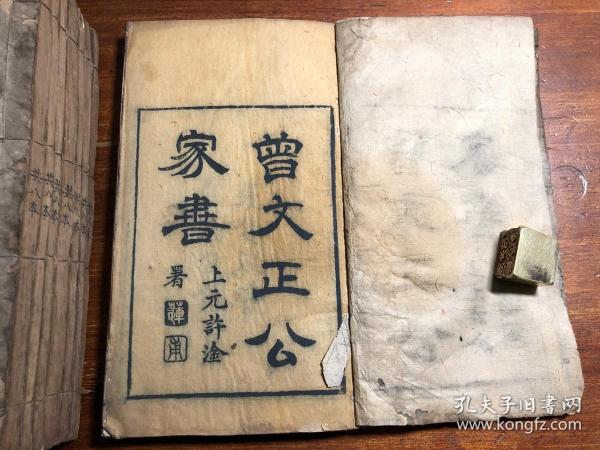 曾文正公
家書
上元許淦
署
孔夫子旧书网
www.kongfz.com